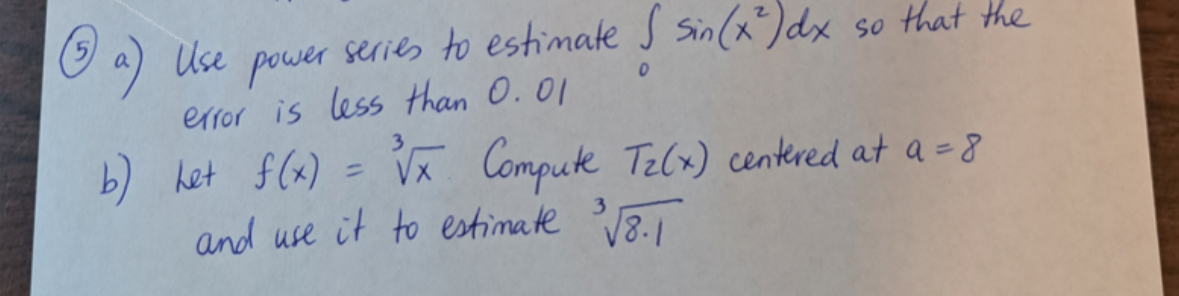 ⑤ a) Use power series to estimate ∫₀ sin(x²)dx so that the
error is less than 0.01
b) Let f(x) = ∛x Compute T₂(x) centered at a = 8
and use it to estimate ∛8.1